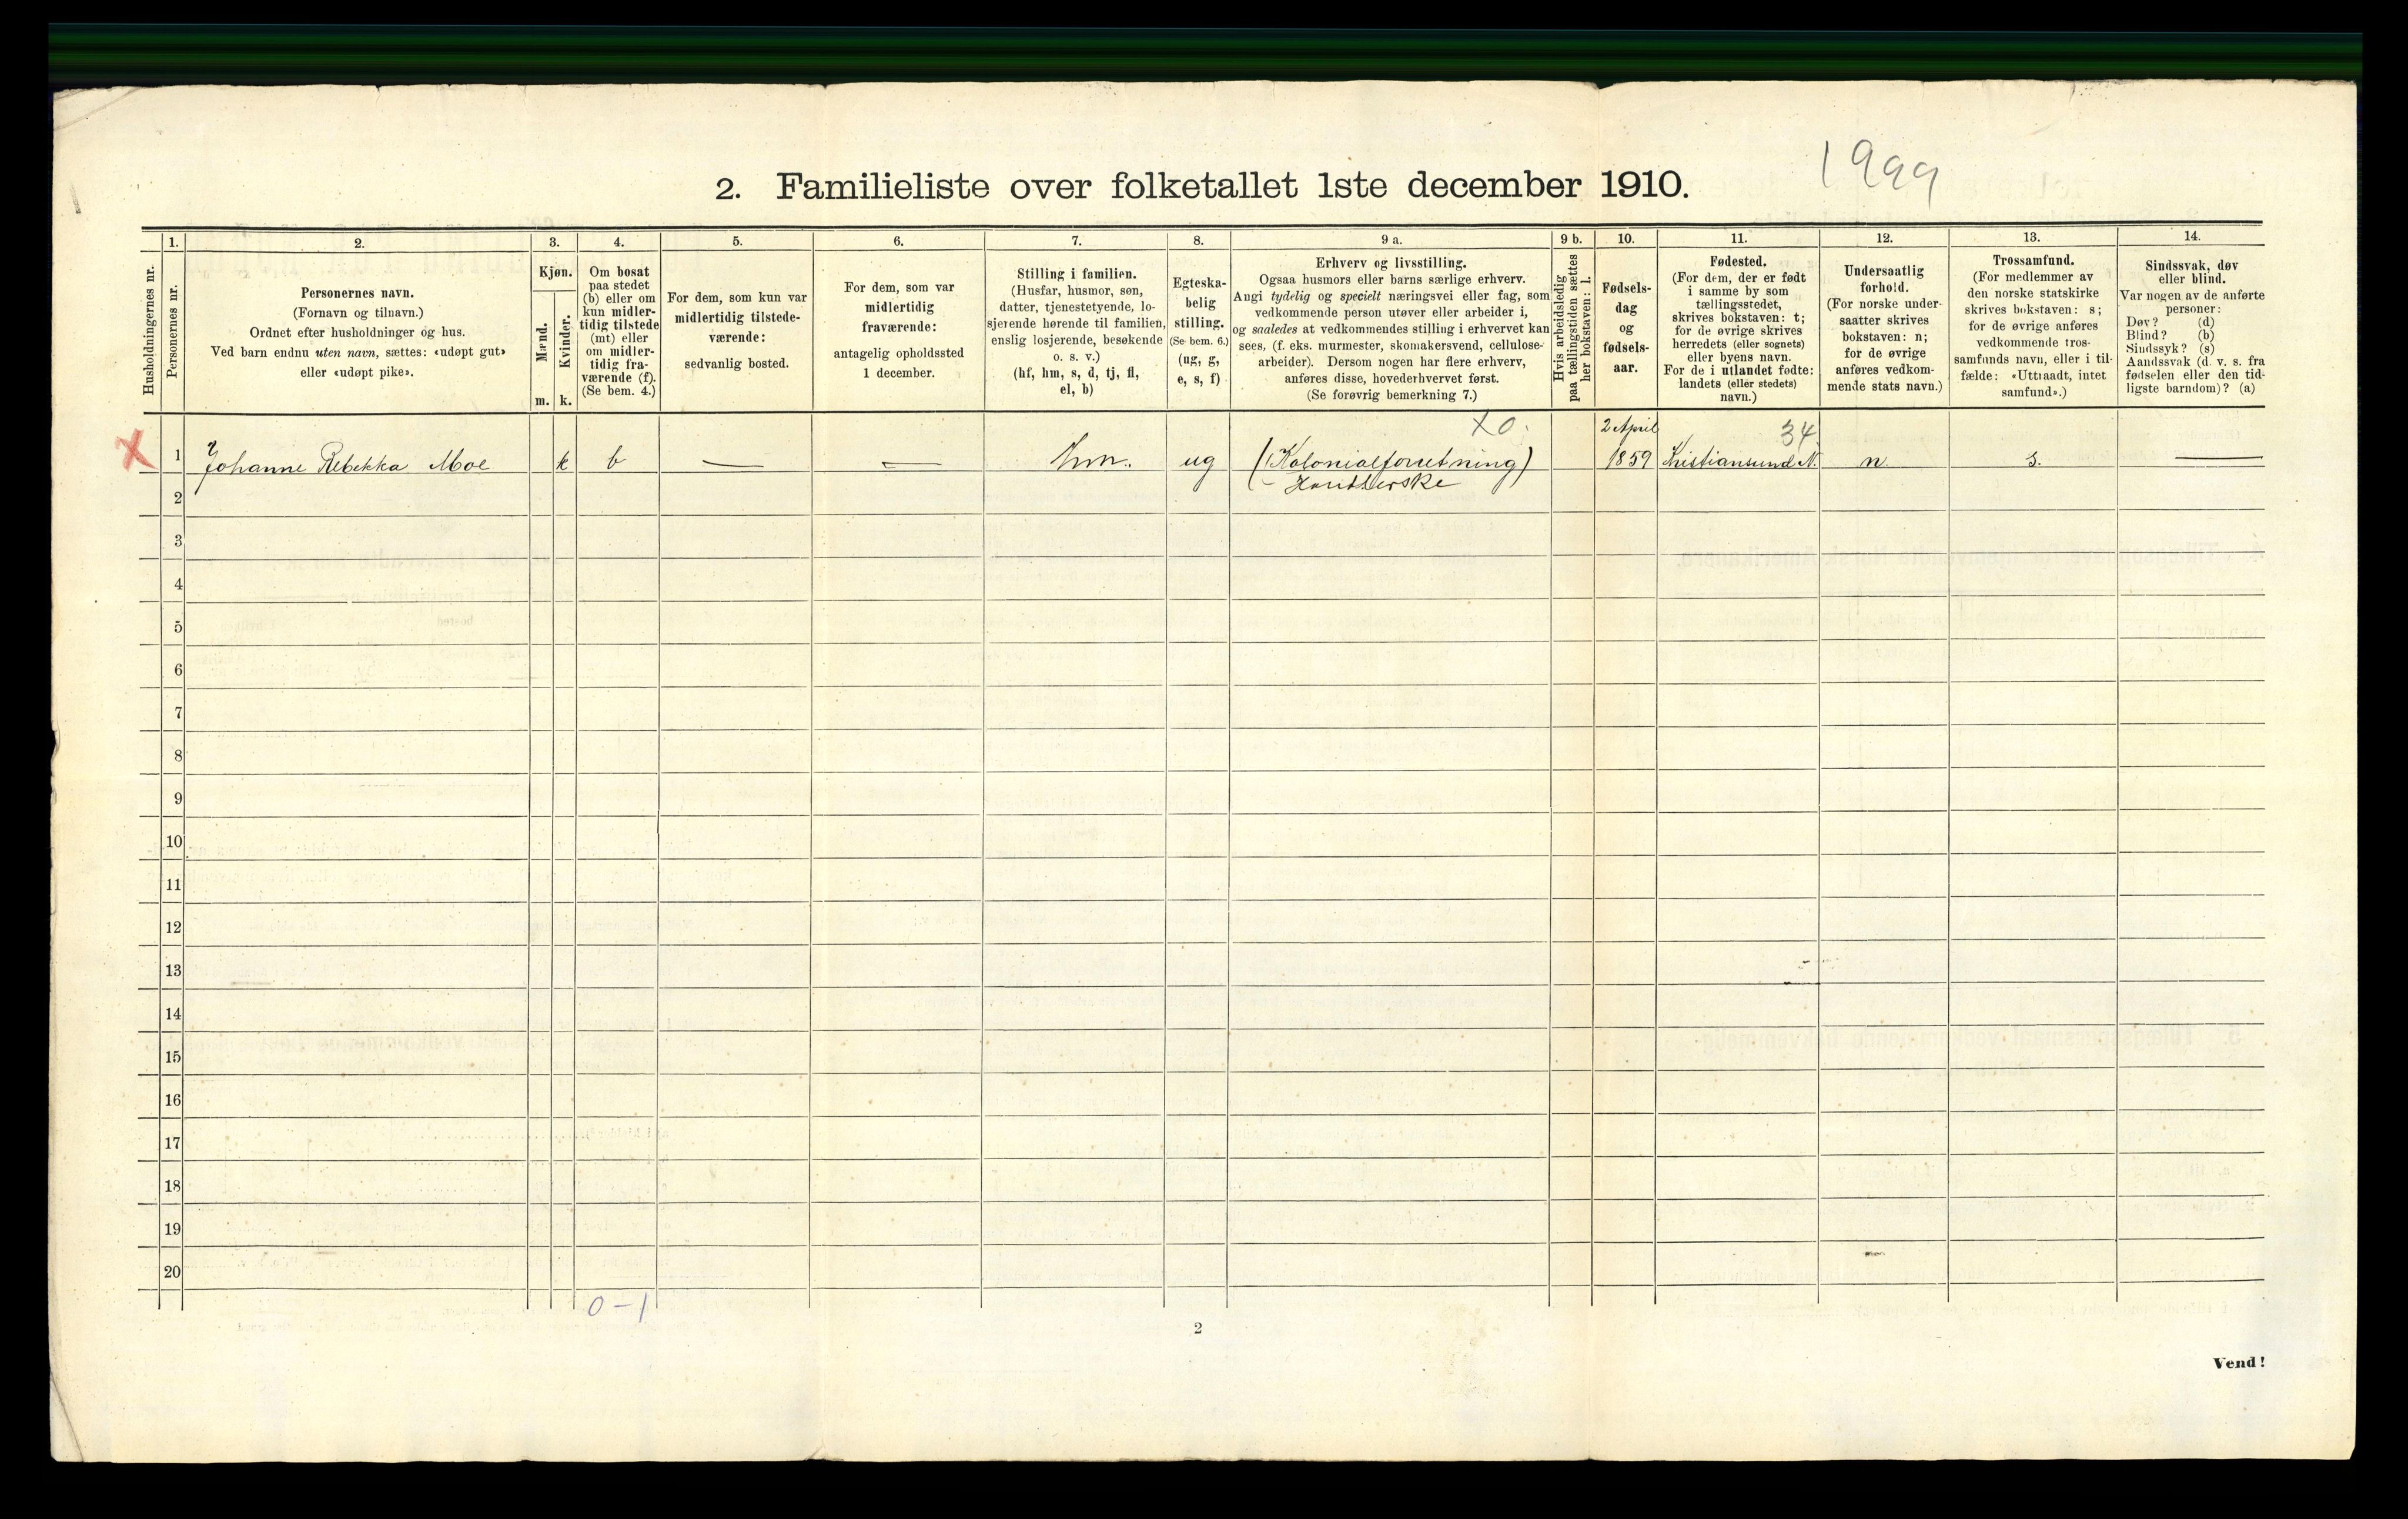 1999
2. Familieliste over folketallet 1ste december 1910.
Husholdningernes nr.
1.
Personernes nr.
2.
Personernes navn.
(Fornavn og tilnavn.)
Ordnet efter husholdninger og hus.
Ved barn endnu uten navn, sættes: «udøpt gut»
eller «udøpt pike».
3.
Kjøn.
Mænd.
Kvinder.
m.
k.
4.
Om bosat
paa stedet
(b) eller om
kun midler-
tidig tilstede
(mt) eller
om midler-
tidig fra-
værende (f).
(Se bem. 4.)
5.
For dem, som kun var
midlertidig tilstede-
værende:
sedvanlig bosted.
6.
For dem, som var
midlertidig
fraværende:
antagelig opholdssted
1 december.
7.
Stilling i familien.
(Husfar, husmor, søn,
datter, tjenestetyende, lo-
sjerende hørende til familien,
enslig losjerende, besøkende
o. s. v.)
(hf, hm, s, d, tj, fl,
el, b)
8.
Egteska-
belig
stilling.
(Se bem. 6.)
(ug, g,
e, s, f)
9 a.
Erhverv og livsstilling.
Ogsaa husmors eller barns særlige erhverv.
Angi tydelig og specielt næringsvei eller fag, som
vedkommende person utøver eller arbeider i,
og saaledes at vedkommendes stilling i erhvervet kan
sees, (f. eks. murmester, skomakersvend, cellulose-
arbeider). Dersom nogen har flere erhverv,
anføres disse, hovederhvervet først.
(Se forøvrig bemerkning 7.)
9 b.
Hvis arbeidsledig
paa tællingstiden sættes
her bokstaven: l.
10.
Fødsels-
dag
og
fødsels-
aar.
11.
Fødested.
(For dem, der er født
i samme by som
tællingsstedet,
skrives bokstaven: t;
for de øvrige skrives
herredets (eller sognets)
eller byens navn.
For de i utlandet fødte:
landets (eller stedets)
navn.)
12.
Undersaatlig
forhold.
(For norske under-
saatter skrives
bokstaven: n;
for de øvrige
anføres vedkom-
mende stats navn.)
13.
Trossamfund.
(For medlemmer av
den norske statskirke
skrives bokstaven: s;
for de øvrige anføres
vedkommende tros-
samfunds navn, eller i til-
fælde: «Uttraadt, intet
samfund».)
14.
Sindssvak, døv
eller blind.
Var nogen av de anførte
personer:
Døv? (d)
Blind? (b)
Sindssyk? (s)
Aandssvak (d. v. s. fra
fødselen eller den tid-
ligste barndom)? (a)
X0. 2 April 34.
X 1 Johanne Rebekka Moe k b — — hm. ug (Kolonialforretning) 1859 Kristiansund N. n s. —
2
3
4
5
6
7
8
9
10
11
12
13
14
15
16
17
18
19
20
0 – 1
2
Vend!